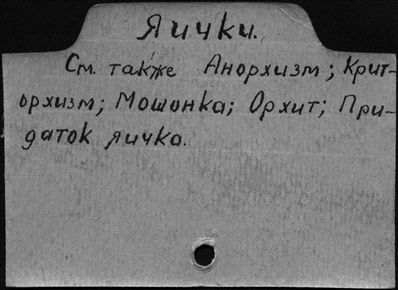 Яички.
См. также Анорхизм; Крит-
орхизм; Мошонка; Орхит; При-
даток яичка.